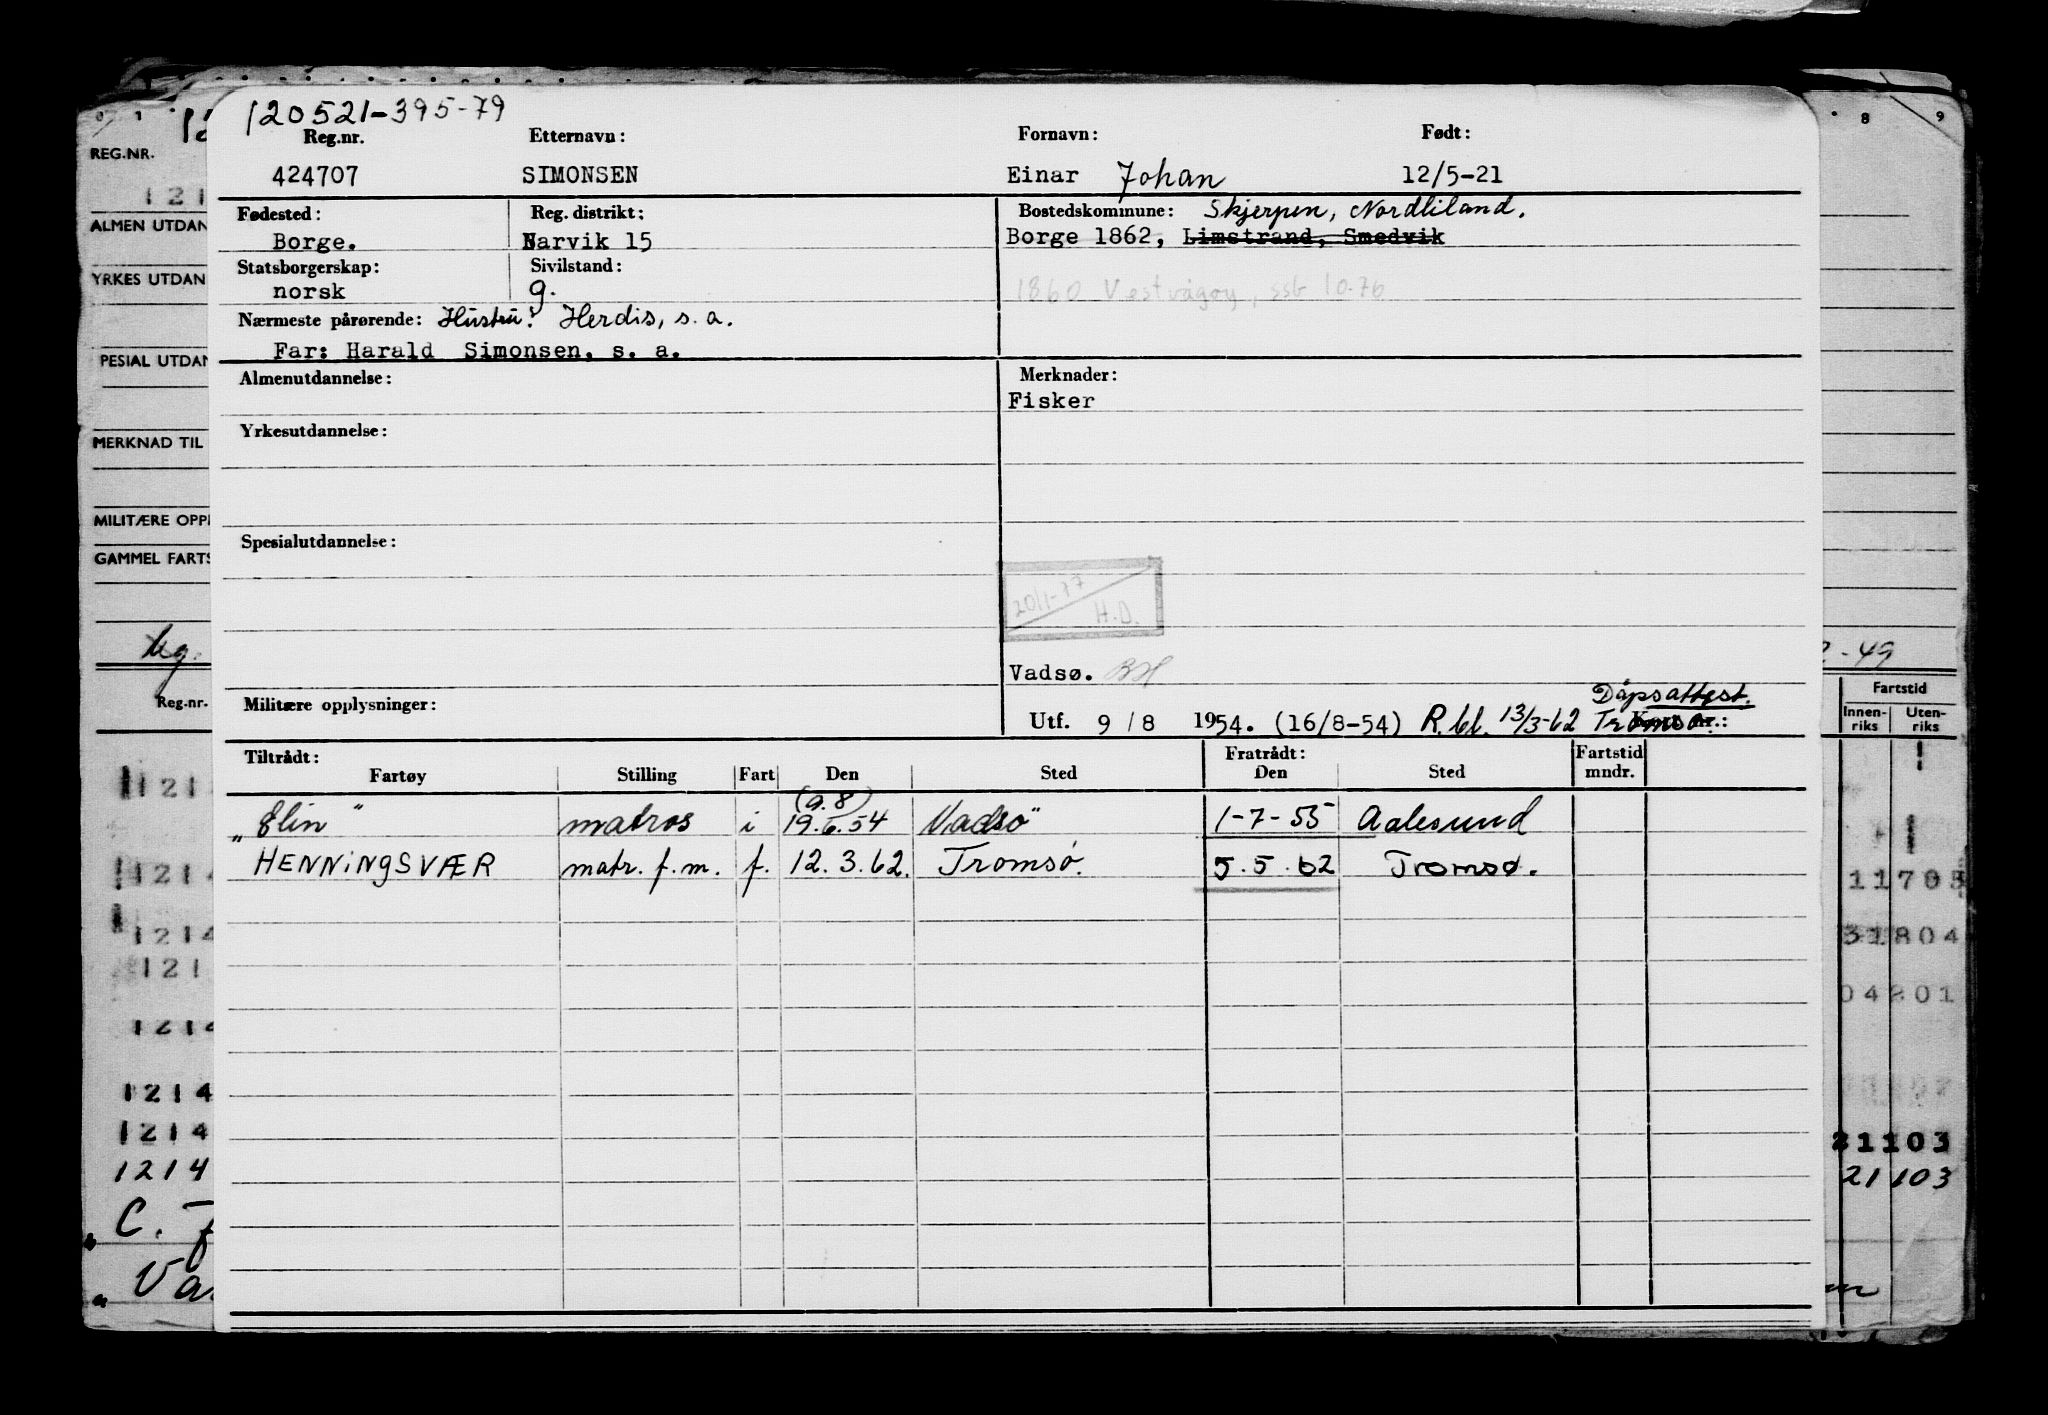 120521-395-79
Reg.nr. Etternavn: Fornavn: Født:
424707 SIMONSEN Einar Johan 12/5-21
Fødested: Reg. distrikt: Bostedskommune: Skjerpen, Nordliland.
Borge. Narvik 15 Borge 1862, Limstrand, Smedvik
Statsborgerskap: Sivilstand:
norsk g. 1860 Vestvågøy, ssb 10.76
Nærmeste pårørende: Hustru: Herdis, s. a.
Far: Harald Simonsen, s. a.
Almenutdannelse: Merknader:
Fisker
Yrkesutdannelse:
Spesialutdannelse:
20/1-77
H.D.
Vadsø. BH
Militære opplysninger: Dåpsattest.
Utf. 9/8 1954. (16/8-54) R.bl. 13/3-62 Tromsø.:
Tiltrådt: Fratrådt: Fartstid
Fartøy Stilling Fart Den Sted Den Sted mndr.
(9.8)
"Elin" matros i 19.6.54 Vadsø" 1-7-55 Aalesund
HENNINGSVÆR matr. f.m. f. 12.3.62. Tromsø. 5.5.62 Tromsø.
REG.NR.
121
ALMEN UTDAN
YRKES UTDAN
PESIAL UTDAN
MERKNAD TIL
MILITÆRE OPPI
GAMMEL FARTS
Reg.nr.
1214
1214
1214
121
1214
1214
1214
1214
C.
Va
8 9
-49
Fartstid
Innen-riks Uten-riks
11703
31804
04201
21103
21103